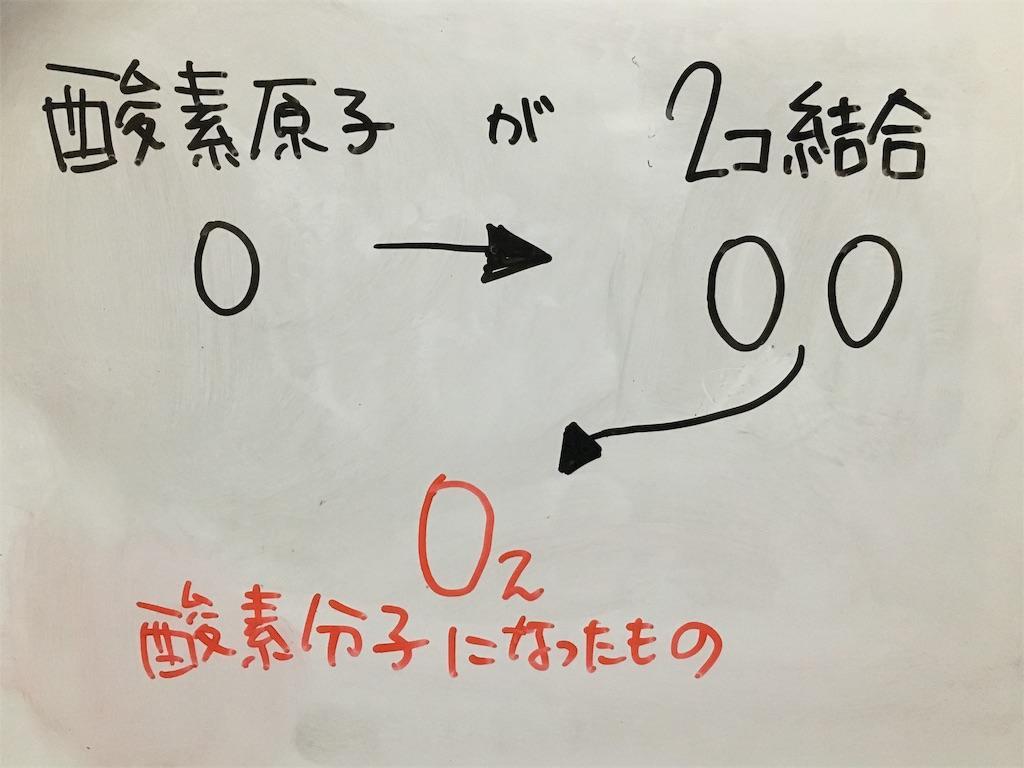 酸素原子 が 2コ結合
O → OO
O₂
酸素分子になったもの